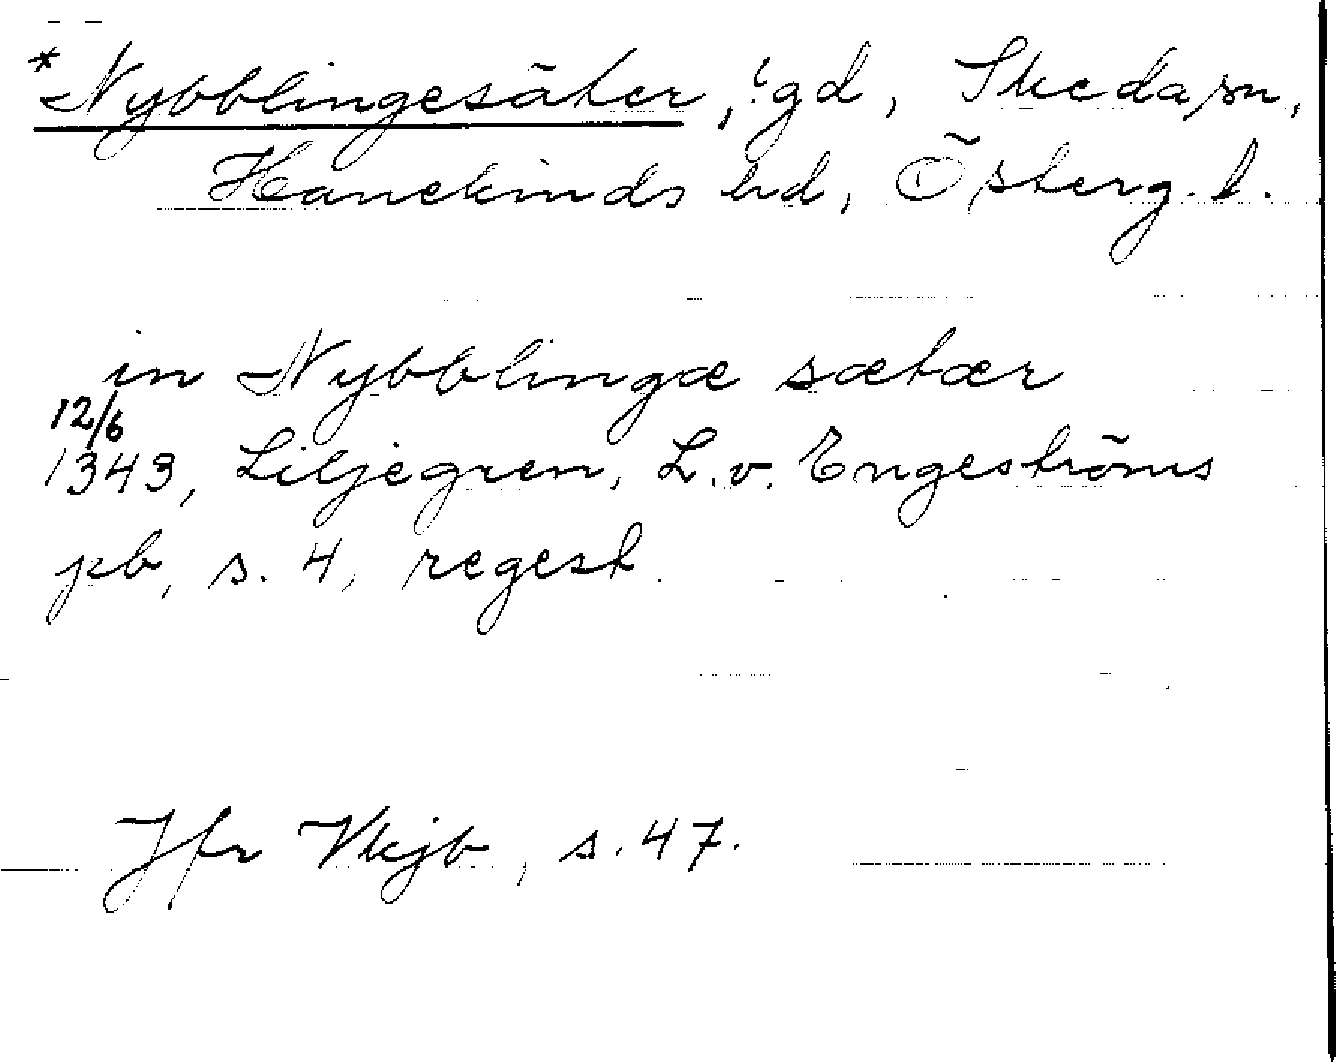 *Nybblingesäter, ?gd, Skeda sn,
Hanekinds hd, Österg. l.
in Nybblingæ sætær
12/6
1343, Liljegren, L. v. Engeströms
pb, s. 4, regest.
Jfr Vkjb, s. 47.